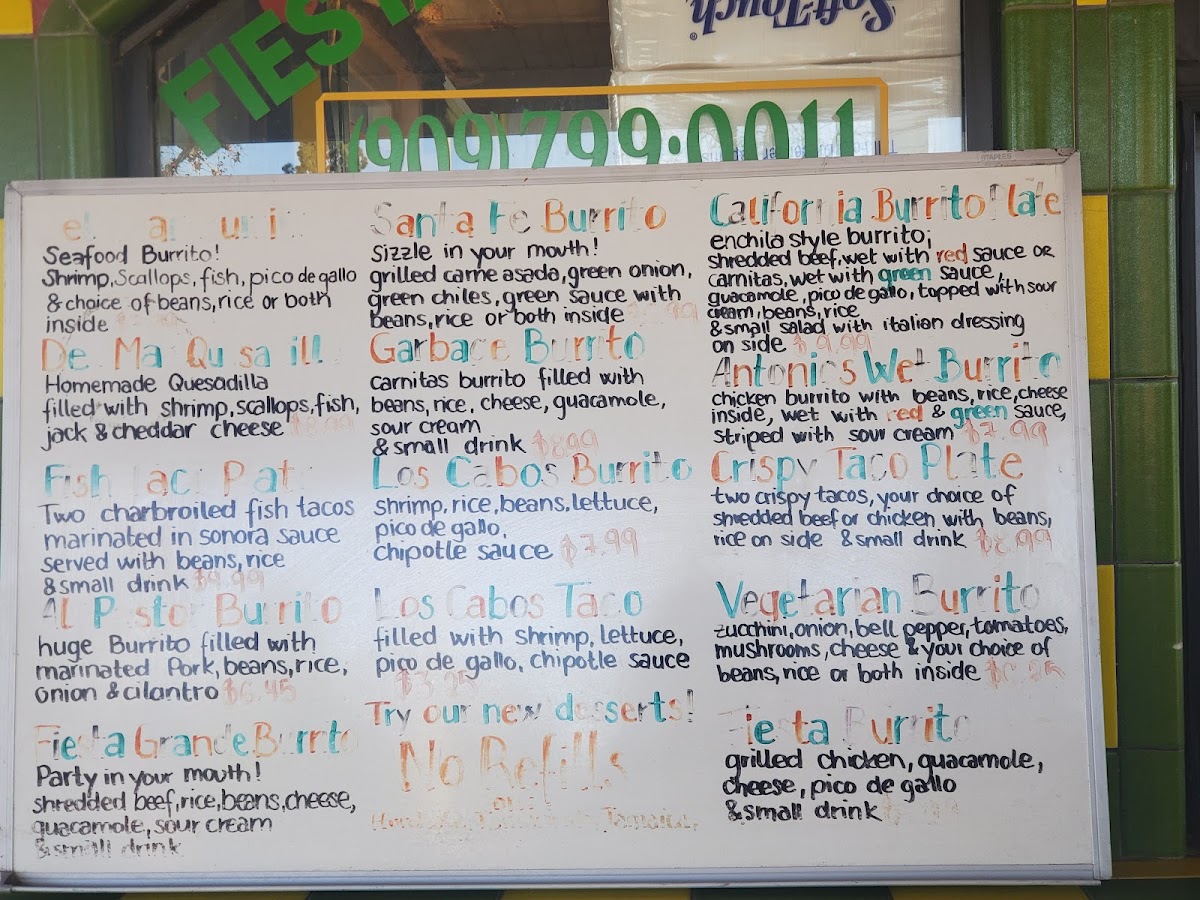 FIES
SoftTouch
(909)799·0011
Seafood Burrito!
Shrimp, Scallops, fish, pico de gallo
& choice of beans, rice or both
inside
Homemade Quesadilla
filled with shrimp, scallops, fish,
jack & cheddar cheese $8.99
Fish
Two charbroiled fish tacos
marinated in sonora sauce
served with beans, rice
& small drink $9.99
Al Pastor Burrito
huge Burrito filled with
marinated Pork, beans, rice,
onion & cilantro $6.45
Fiesta Grande Burrito
Party in your mouth!
shredded beef, rice, beans, cheese,
guacamole, sour cream
& small drink
Santa Fe Burrito
Sizzle in your mouth!
grilled carne asada, green onion,
green chiles, green sauce with
beans, rice or both inside
Garbage Burrito
carnitas burrito filled with
beans, rice, cheese, guacamole,
sour cream
& small drink $8.99
Los Cabos Burrito
shrimp, rice, beans, lettuce,
pico de gallo,
chipotle sauce $7.99
Los Cabos Taco
filled with shrimp, lettuce,
pico de gallo, chipotle sauce
Try our new desserts!
No Refills
on:
Jamaica,
California Burrito Plate
enchila style burrito;
shredded beef, wet with red sauce or
carnitas, wet with green sauce,
guacamole, pico de gallo, topped with sour
cream, beans, rice
& small salad with italian dressing
on side $9.99
Antonios Wet Burrito
chicken burrito with beans, rice, cheese
inside, wet with red & green sauce,
striped with sour cream $7.99
Crispy Taco Plate
two crispy tacos, your choice of
shredded beef or chicken with beans,
rice on side & small drink $8.99
Vegetarian Burrito
zucchini, onion, bell pepper, tomatoes,
mushrooms, cheese & your choice of
beans, rice or both inside
Fiesta Burrito
grilled chicken, guacamole,
cheese, pico de gallo
& small drink